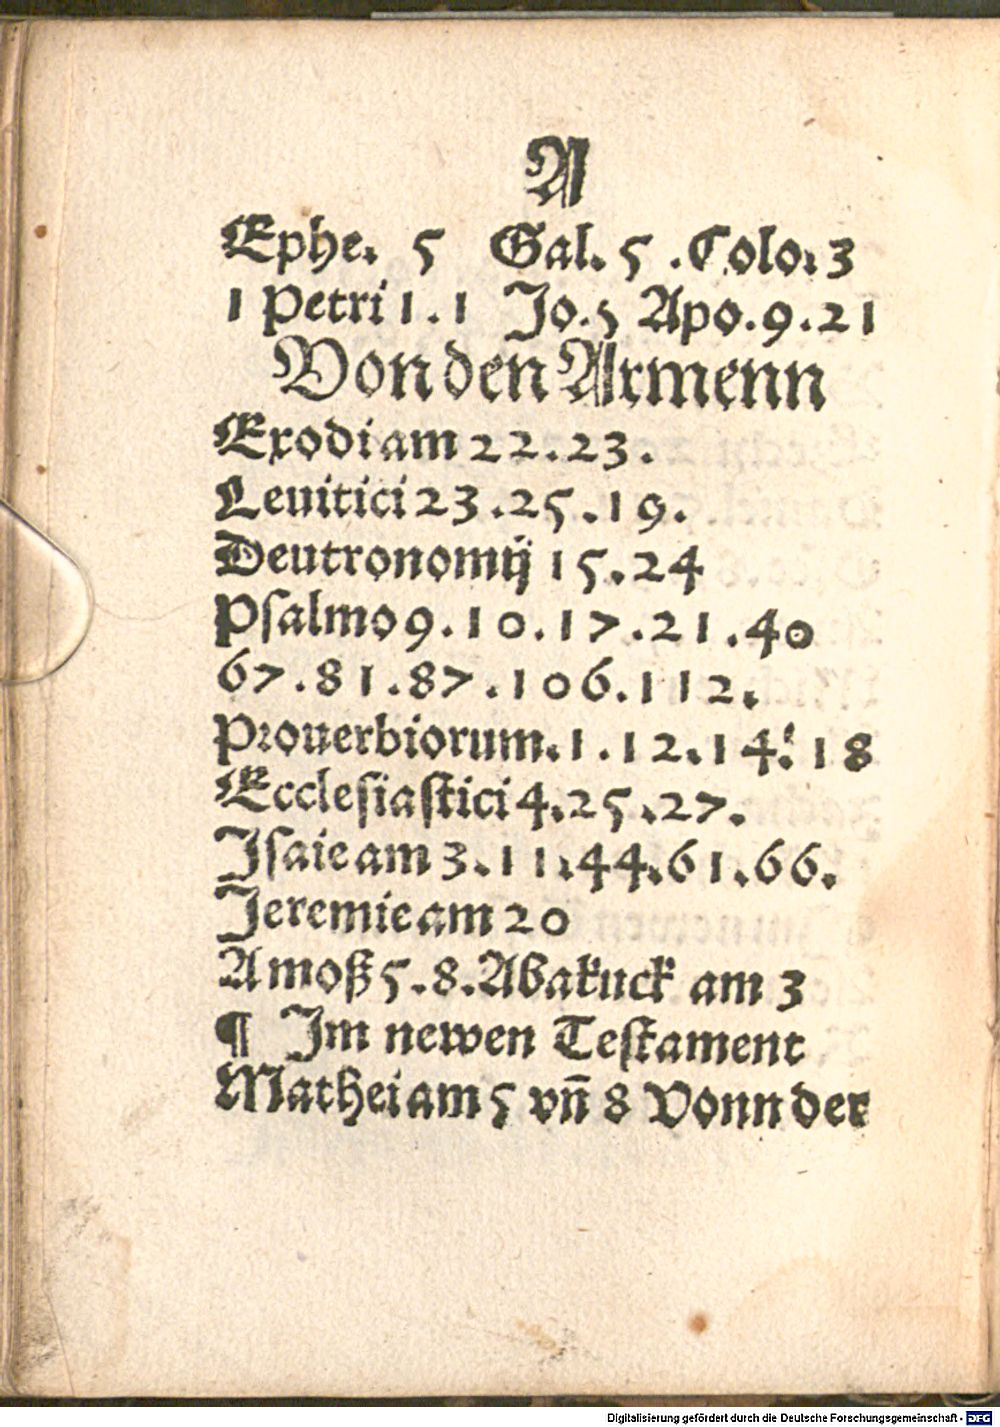 A
Ephe. 5 Gal. 5 .Colo. 3
1 Petri 1 . 1 Jo. 5 Apo. 9 . 21
Von den Armenn
Exodi am 22 . 23 .
Leuitici 23 . 25 . 19 .
Deutronomij 15 . 24
Psalmo 9 . 10 . 17 . 21 . 40
67 . 81 . 87 . 106 . 112 .
Prouerbiorum. 1 . 12 . 14 . 18
Ecclesiastici 4 . 25 . 27 .
Jsaie am 3 . 11 . 44 . 61 . 66 .
Jeremie am 20
Amoß 5 . 8 . Abakuck am 3
¶ Jm newen Testament
Mathei am 5 vn̄ 8 Vonn der
Digitalisierung gefördert durch die Deutsche Forschungsgemeinschaft - DFG